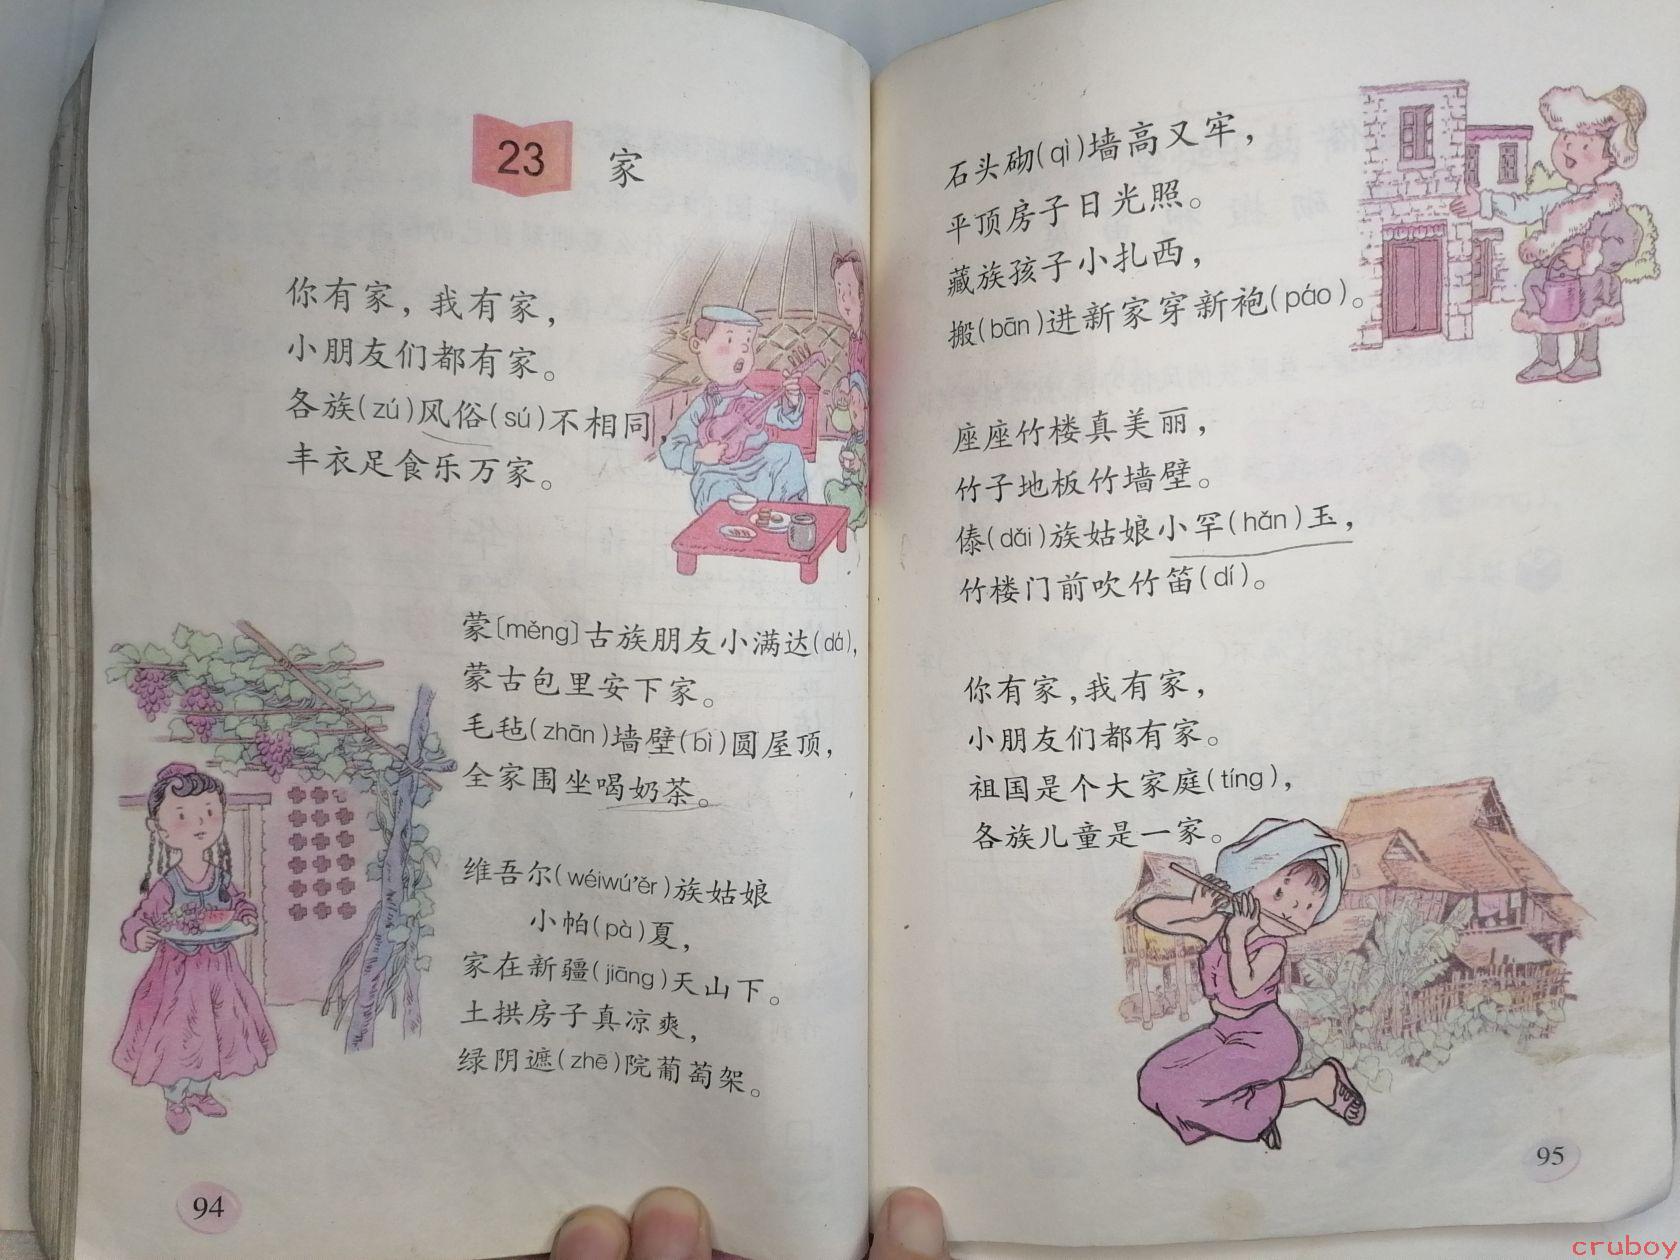 23 家
你有家，我有家，
小朋友们都有家。
各族(zú)风俗(sú)不相同，
丰衣足食乐万家。
蒙〔měng〕古族朋友小满达(dá)，
蒙古包里安下家。
毛毡(zhān)墙壁(bì)圆屋顶，
全家围坐喝奶茶。
维吾尔(wéiwú’ěr)族姑娘
小帕(pà)夏，
家在新疆(jiāng)天山下。
土拱房子真凉爽，
绿阴遮(zhē)院葡萄架。
94
石头砌(qì)墙高又牢，
平顶房子日光照。
藏族孩子小扎西，
搬(bān)进新家穿新袍(páo)。
座座竹楼真美丽，
竹子地板竹墙壁。
傣(dǎi)族姑娘小罕(hǎn)玉，
竹楼门前吹竹笛(dí)。
你有家，我有家，
小朋友们都有家。
祖国是个大家庭(tíng)，
各族儿童是一家。
95
cruboy